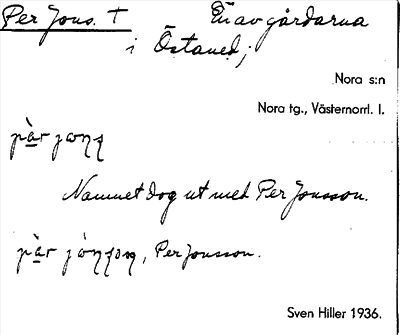 Per Jons. † En av gårdarna
i Östaned;
Nora s:n
Nora tg., Västernorrl. l.
pàr jɔns
Namnet dog ut med Per Jonsson.
Per Jonsson.
Sven Hiller 1936.